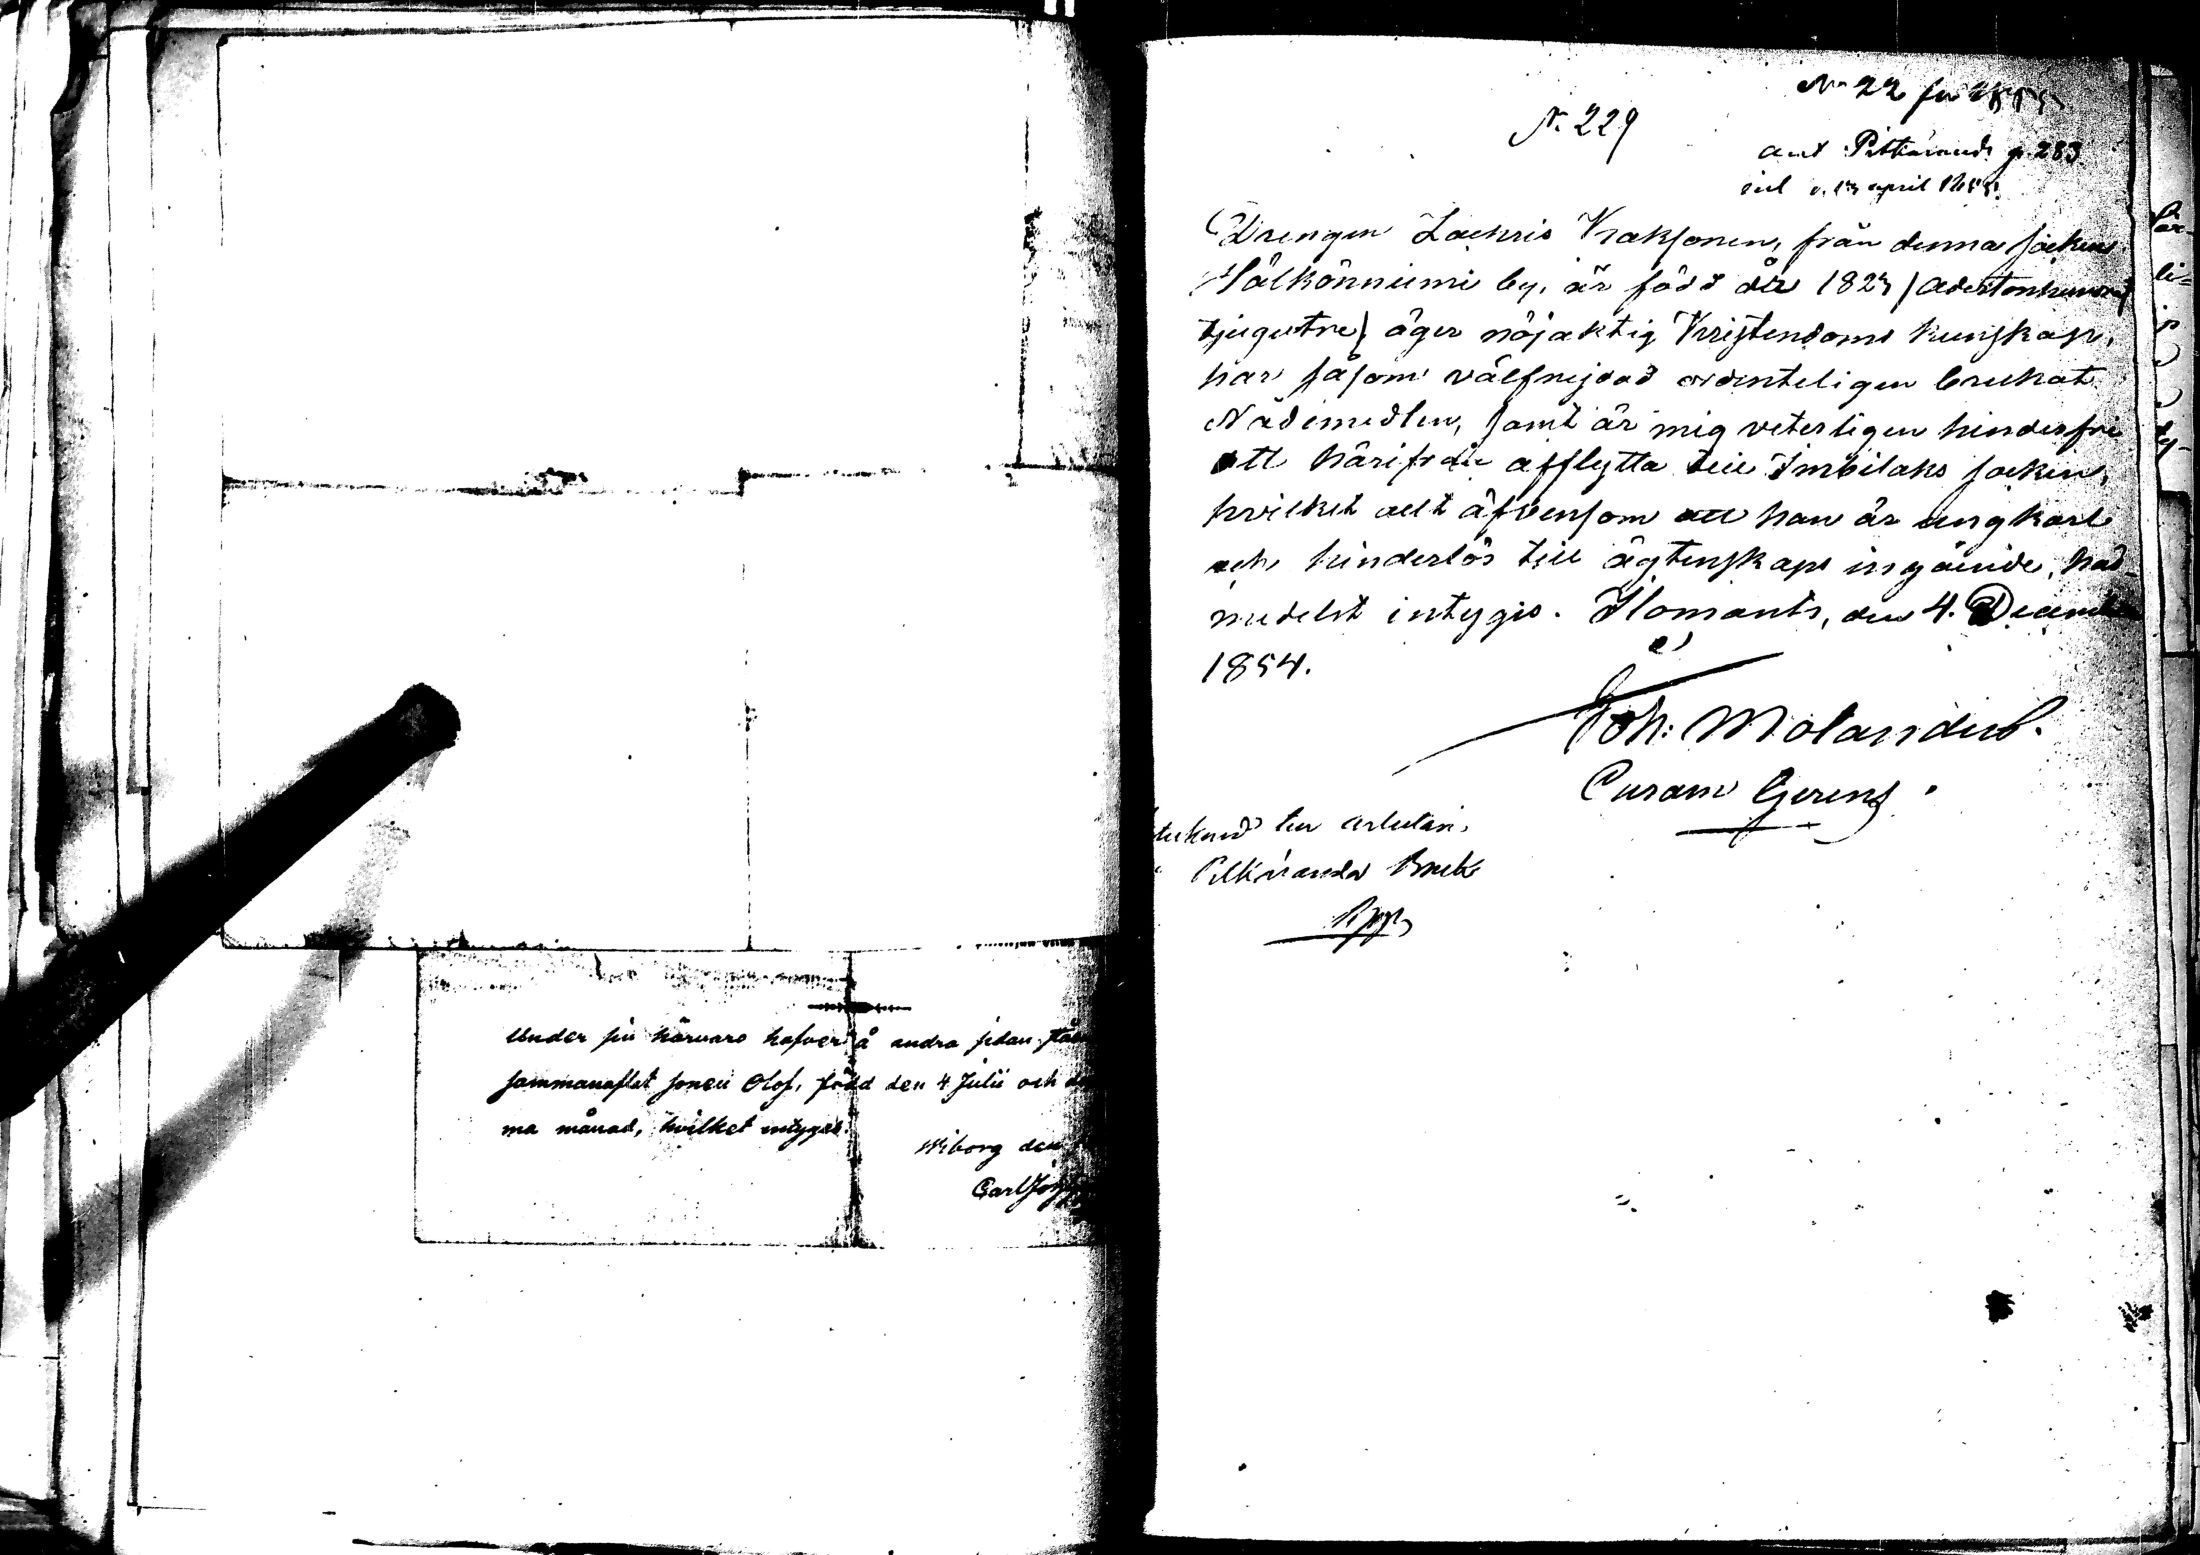 Under sin härvaro hafver å andra sidan
sammanaflat sonen Olof, född den 4 Julii och
ma månad, hvilket intygas.
Wiborg den
Carl
No 22 för
N. 229
ant Pitkäranda p. 283
inl d. april
Drengen Zachris Kraksonen, från denna socken
Hälkönniemi by, är född år 1823 / adertonhundra
tjugutre / äger nöjaktig Kristendoms kunskap,
har såsom välfrejdad ordenteligen brukat
Nådemedlen, samt är mig veterligen hinderfri
att härifrån afflytta till Imbilaks socken,
hvilket allt äfvensom att han är ungkarl
och hinderlös till ägtenskaps ingående, här-
medelst intygis. Ilomants, den 4. December
1854.
Joh: Molander.
Curam Gerens.
till arbetare
Pitkäranda Bruk
li-